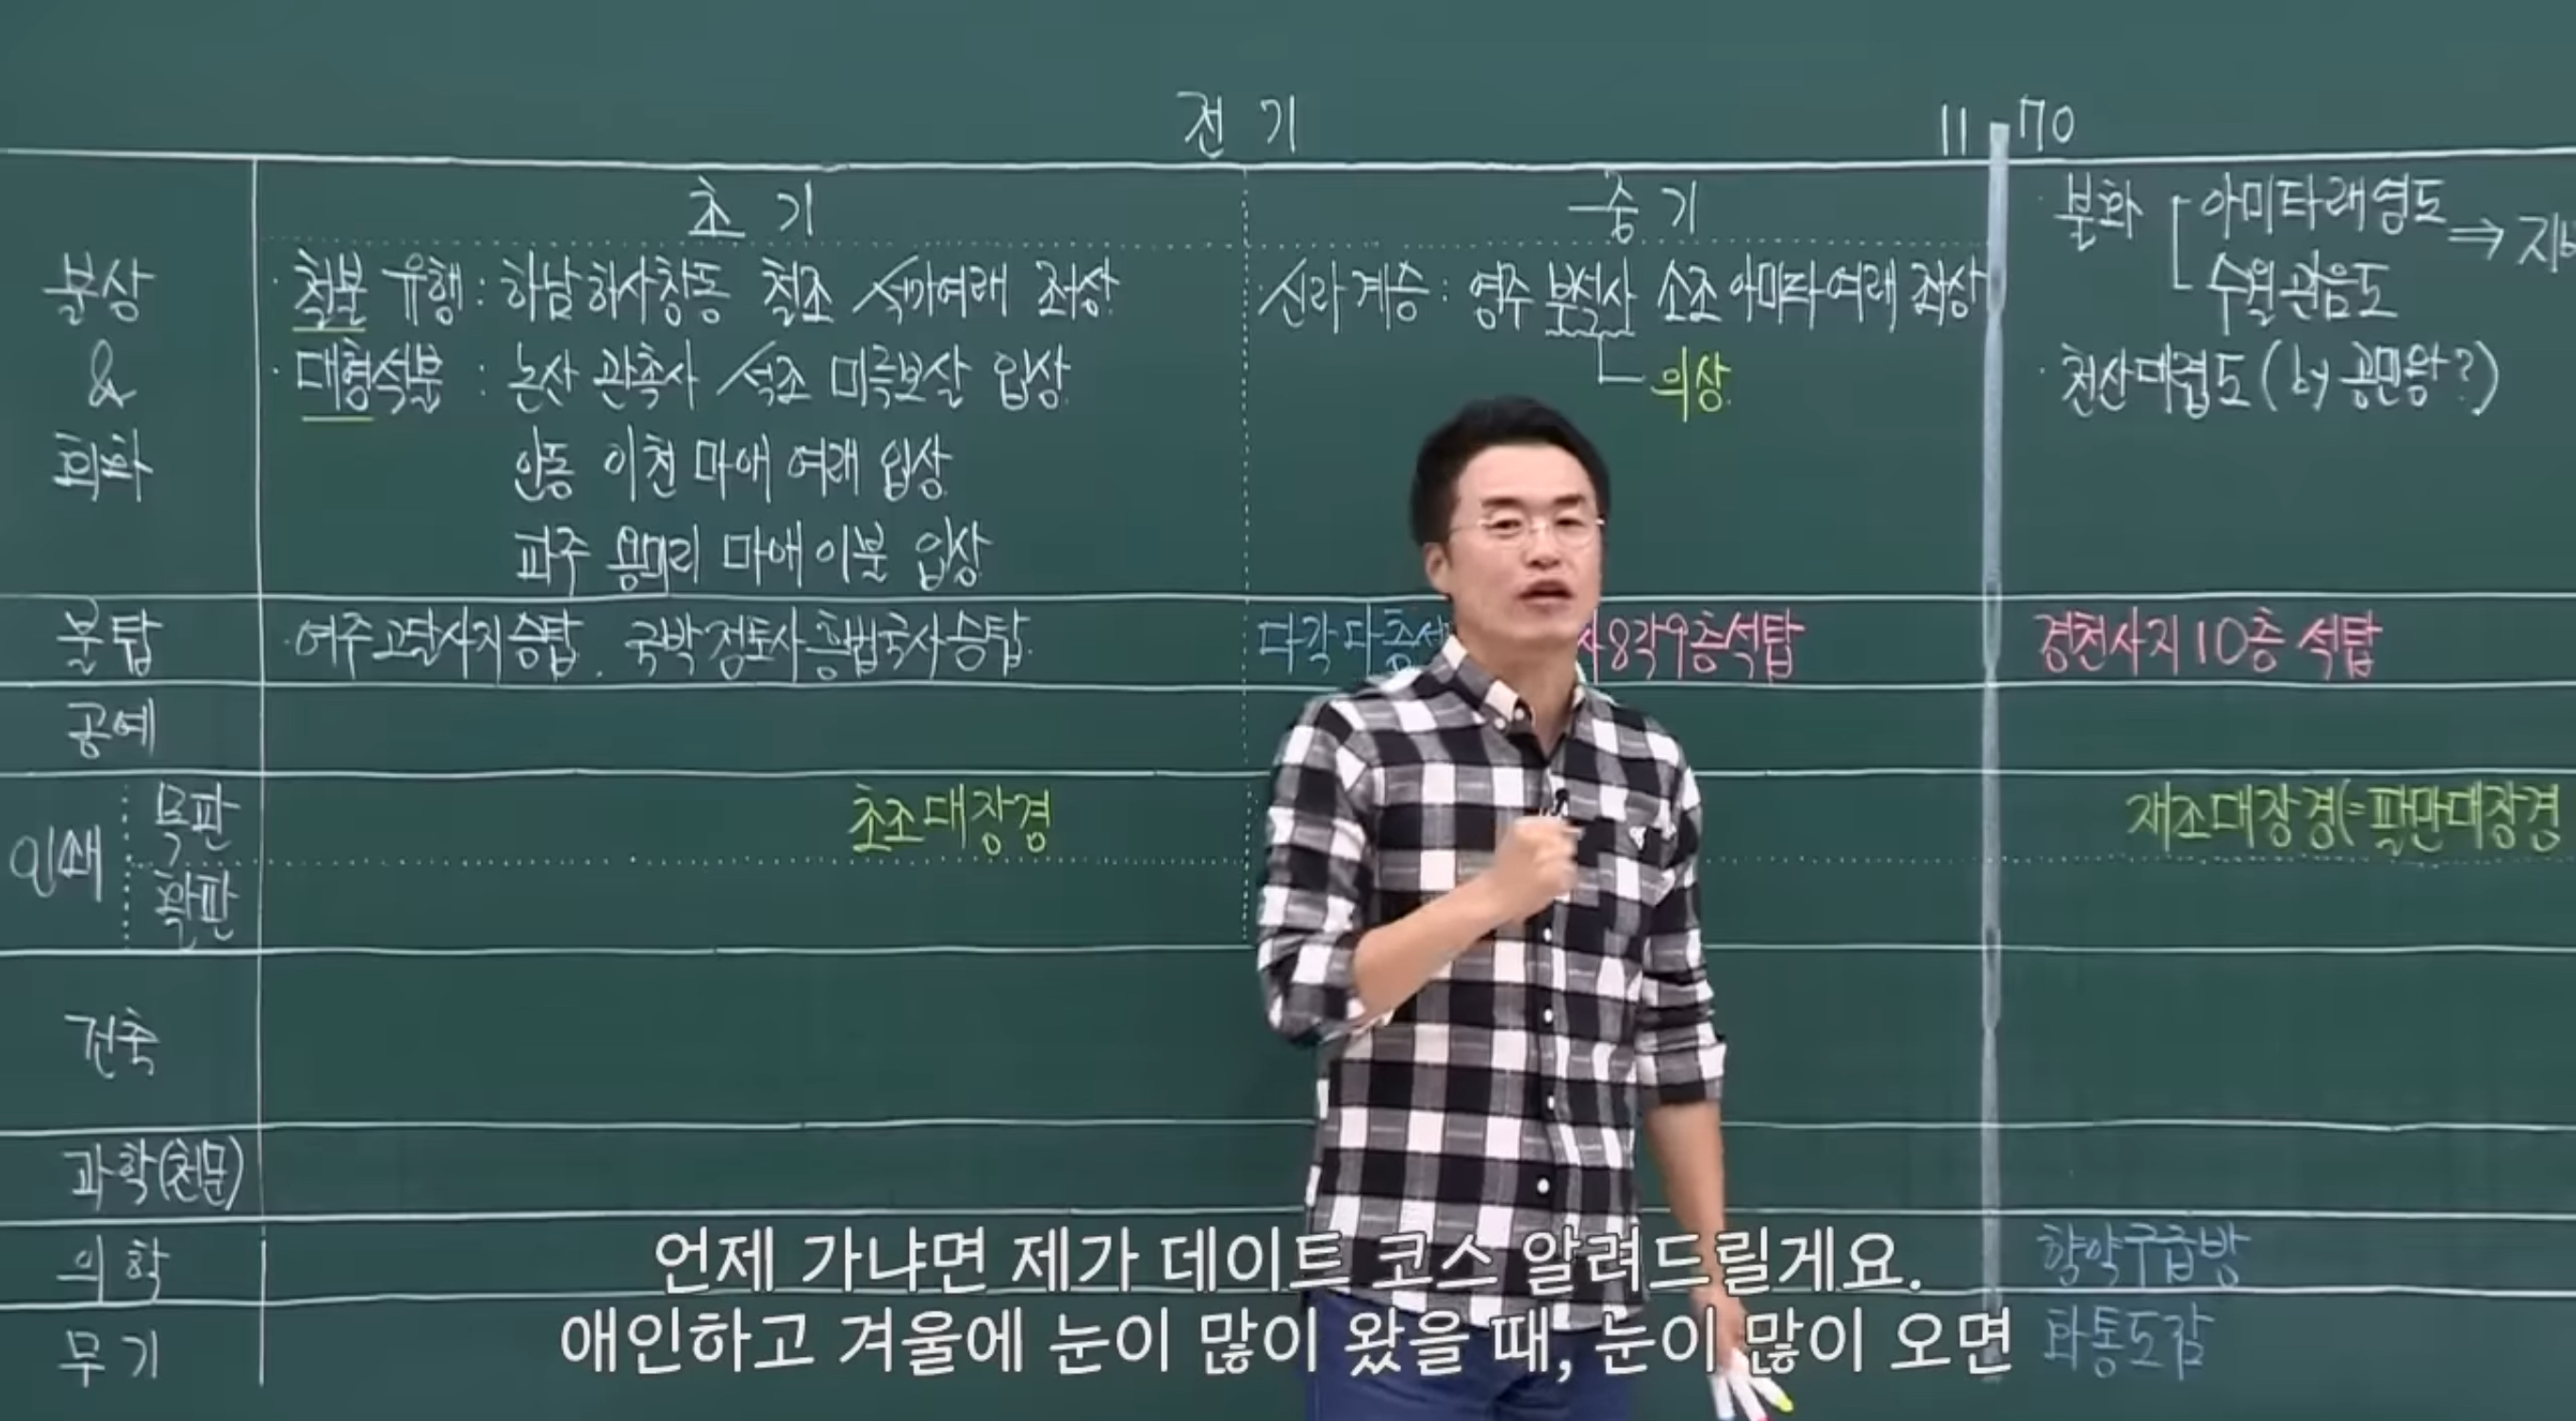 전기 11 70
초기 중기
· 불화 [ 아미타래영도
수월관음도 ⇒
불상 & 회화
· 철불 유행 : 하남 하사창동 철조 석가여래 좌상
· 대형석불 : 논산 관촉사 석조 미륵보살 입상
안동 이천 마애 여래 입상
파주 용미리 마애 이불 입상
· 신라 계승 : 영주 부석사 소조 아미타여래 좌상
의상
· 천산대렵도 (by 공민왕?)
불탑
· 여주 고달사지 승탑. 국박 정토사 흥법국사 승탑
다각 다층 사 8각 9층 석탑
경천사지 10층 석탑
공예
인쇄 목판 초조대장경 재조대장경(=팔만대장경
활판
건축
과학(천문)
의학 향약구급방
무기 화통도감
언제 가냐면 제가 데이트 코스 알려드릴게요.
애인하고 겨울에 눈이 많이 왔을 때, 눈이 많이 오면